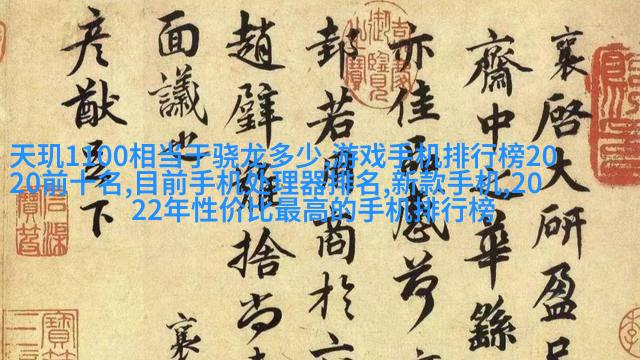 天玑1100相当于骁龙多少,游戏手机排行榜20
20前十名,目前手机处理器排名,新款手机,20
22年性价比最高的手机排行榜
襄啓大研盈
齋中之華繇
亦佳品感荷
邵若用商於
趙璧難捨尚
面議也
襄
彦猷足下